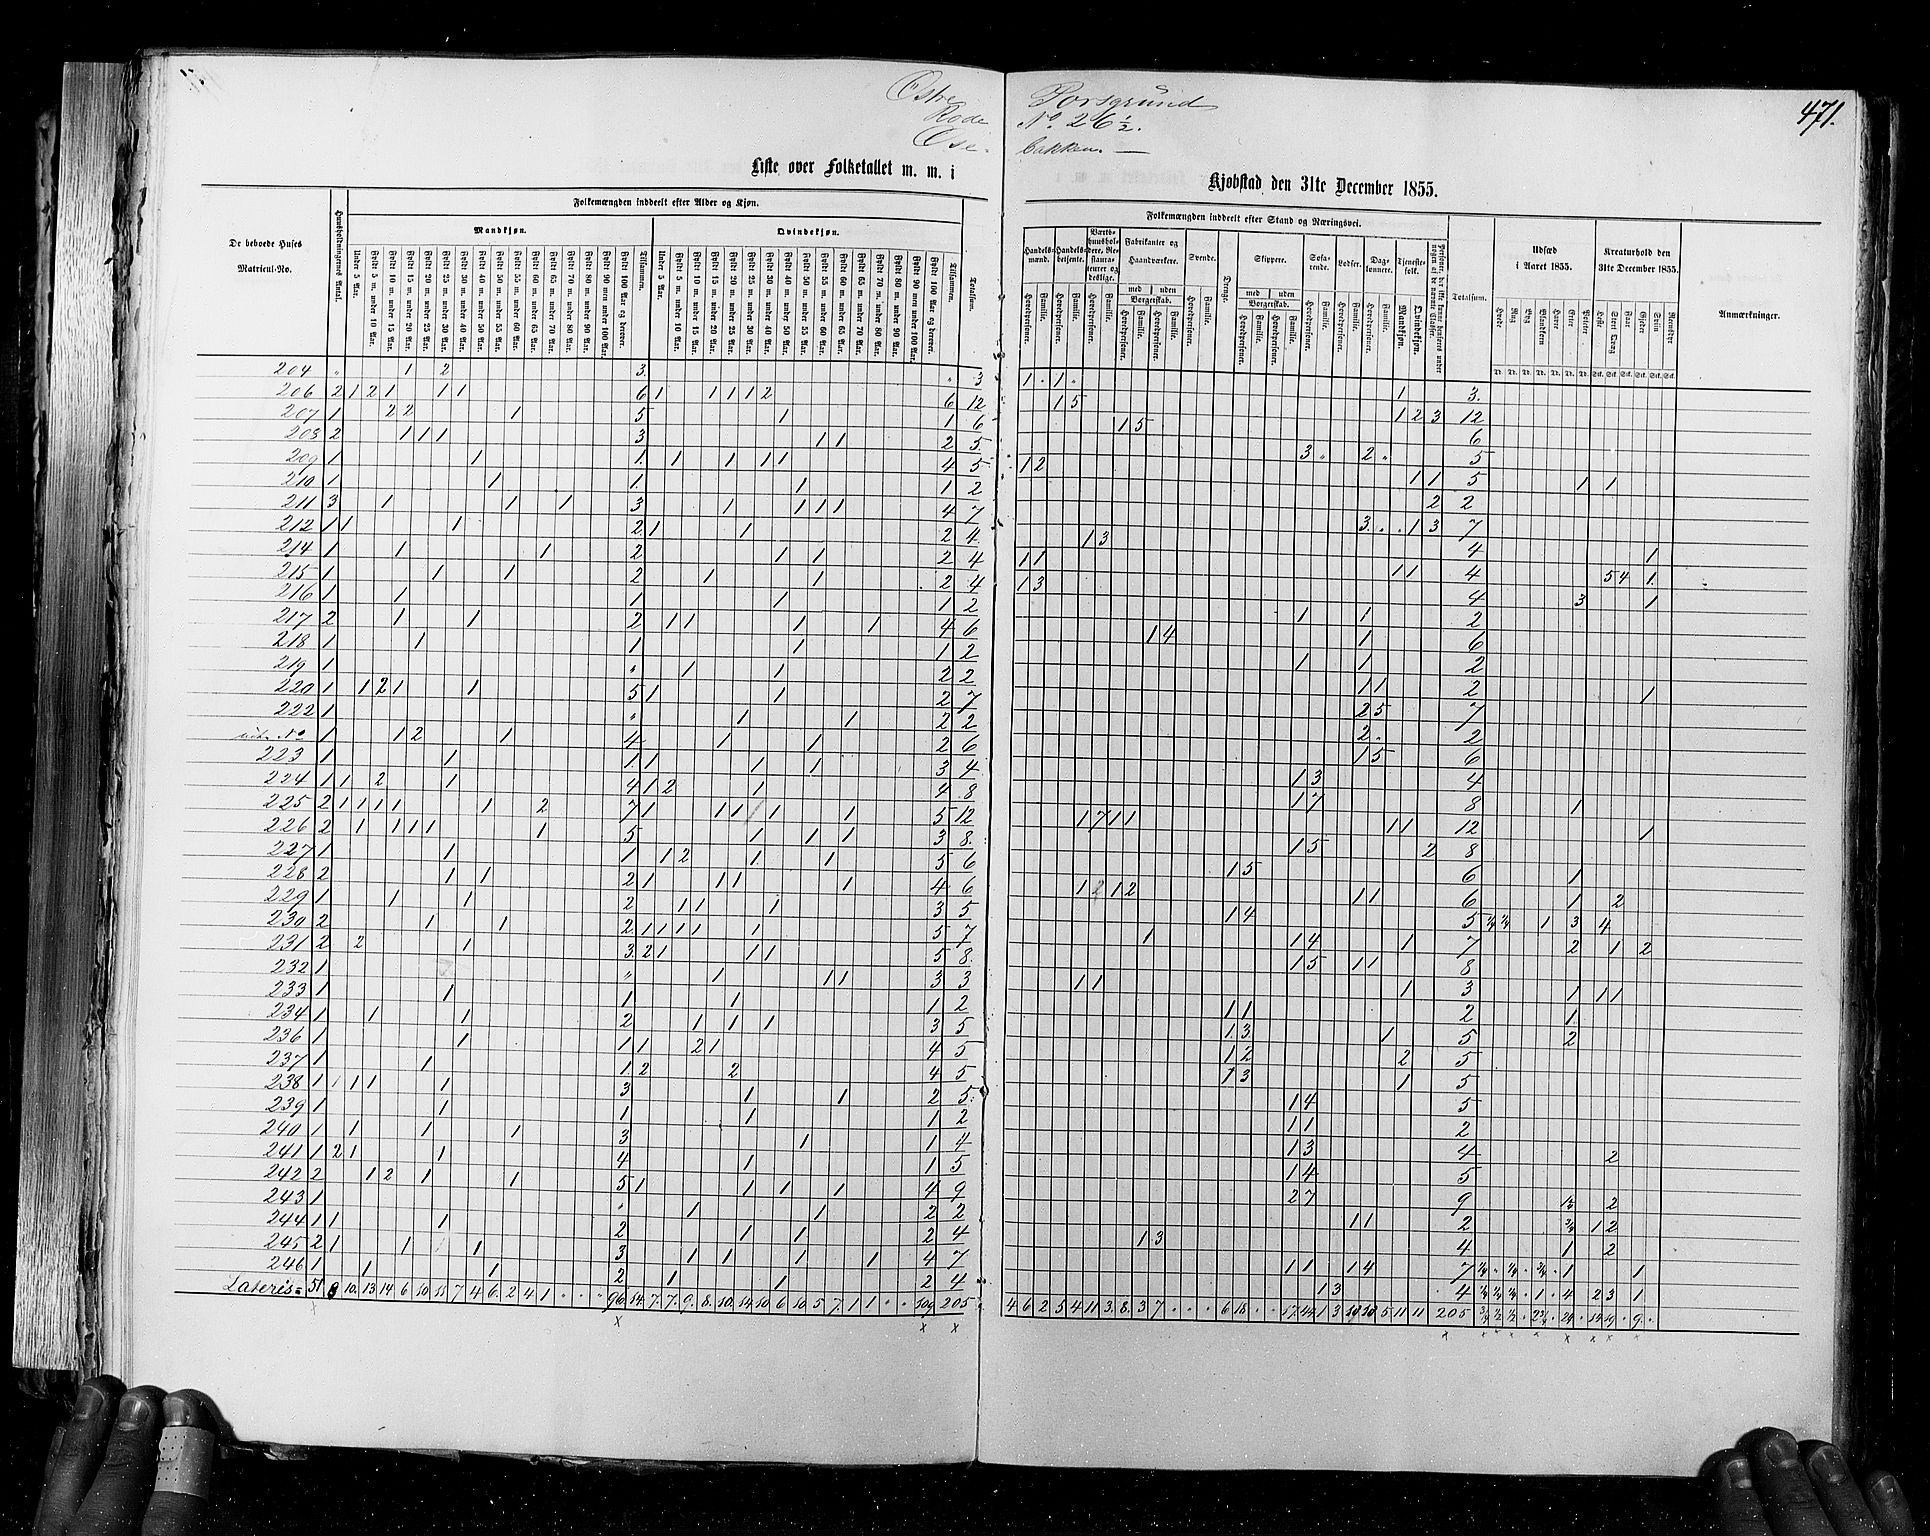 471.
Østre Porsgrund
Rode No. 26½.
Ose- bakken. —
Liste over Folketallet m. m. i Kjøbstad den 31te December 1855.
De beboede Huses Matricul-No.
Huusholdningernes Antal.
Folkemængden inddeelt efter Alder og Kjøn.
Mandkjøn.
Qvindekjøn.
Under 5 Aar.
Fyldt 5 m. under 10 Aar.
Fyldt 10 m. under 15 Aar.
Fyldt 15 m. under 20 Aar.
Fyldt 20 m. under 25 Aar.
Fyldt 25 m. under 30 Aar.
Fyldt 30 m. under 40 Aar.
Fyldt 40 m. under 50 Aar.
Fyldt 50 m. under 55 Aar.
Fyldt 55 m. under 60 Aar.
Fyldt 60 m. under 65 Aar.
Fyldt 65 m. under 70 Aar.
Fyldt 70 m. under 80 Aar.
Fyldt 80 m. under 90 Aar.
Fyldt 90 men under 100 Aar.
Fyldt 100 Aar og derover.
Tilsammen.
Totalsum.
Folkemængden inddeelt efter Stand og Næringsvei.
Handelsmænd.
Handelsbetjente.
Værtshuusholdere, Restaurateurer og deslige.
Fabrikanter og Haandværkere.
med | uden Borgerskab.
Svende.
Drenge.
Skippere.
med | uden Borgerskab.
Søfarende.
Lodser.
Daglønnere.
Tjenestefolk.
Hovedpersoner.
Familie.
Mandkjøn.
Qvindekjøn.
Totalsum.
Udsæd i Aaret 1855.
Hvede
Rug
Byg
Blandkorn
Havre
Erter
Poteter
Kreaturhold den 31te December 1855.
Heste
Stort Qvæg
Faar
Gjeder
Sviin
Rensdyr
Anmærkninger.
204 " 1 2 3. " 3 1 . 1 " 1 3.
206 2 1 2 1 1 1 6 1 1 1 1 2 6 12 1 5 1 2 3 12
207 1 2 2 1 5 1 1 6 1 5 6
203 2 1 1 1 3 1 1 2 5 3 " 2 " 5
209 1 1 1. 1 1 1 1 4 5 1 2 1 1 5 1 1
210 1 1 1. 1 1 2 2 2
211 3 1 1 1 3 1 1 1 1 4 7 3. . . 1 3 7
212 1 1 1 2 1 1 2 4. 1 3 4 1
214 1 1 1 2 1 1 2 4 1 1 1 1 4 5 4 1.
215 1 1 1 2 1 1 2 4 1 3 4 3 1
216 1 1 1 1 1 2 1 1 2
217 2 1 1 2 1 1 1 1 4 6 1 4 1 6
218 1 1 1 1 1 2 1 1 2
219 1 " 1 1 2 2 1 1 2 1
220 1 1 2 1 1 5 1 1 2 7 2 5 7
222 1 " 1 1 2 2 2 . 2
No 1 1 2 1 4 1 1 2 6 1 5 6
223 1 1 1. 1 1 1 3 4 1 3 4
224 1 1 2 1 4 1 2 1 4 8 1 7 8 1
225 2 1 1 1 1 1 2 7 1 1 1 1 1 5 12 1 7 1 1 1 1 12 1
226 2 1 1 1 1 1 5 1 1 1 3 8. 1 5 2 8
227 1 1 1 1 2 1. 1 5 6 1 5 6 1
228 2 1 1 2 1 1 1 1 4 6 1 2 1 2 1 1 6 1 2
229 1 1 1 2 1 1 1 3 5 1 4 5 ¼ ¼ 1 3 4
230 2 1 1 2 1 1 1 1 1 5 7 1 1 4 1 7 2 1 2
231 2 2 1 3. 2 1 1 1 5 8. 1 5 1 1 8
232 1 " 1 1 1 3 3 1 1 1 3 1 1 1
233 1 1 1 1 1 2 1 1 2 1.
234 1 1 1 2 1 1 1 3 5 1. 3. 1 5 2
236 1 1 1 1 2 1 4 5 1 2 2 5
237 1 1 1. 2 2 4 5 1 3 1 5
238 1 1 1 1 1 3 1 1 2 5. 1 4 5
239 1 1 1 1 1 2 1 1 2
240 1 1 1 1 3 1 1 4 1 3 4 2
241 1 2 1 1 4 1 1 5 1 4 5
242 2 1 2 1 1 5 1 1 1 1 4 9 2 7 9 2
243 1 " 1 1 2 2 1 1 2 1 2
244 1 1 1 2 1 1 2 4 1 3 4 1 2
245 2 1 1 1 3 1 1 1 1 4 7 1 1 1 4 7 1 1
246 1 1 1 2 1 1 2 4 1 3 4 1 4 2 3 1
Lateris = 51 9 10. 13 14 6 10 15 7 4 6. 2 4 1 " " " 96 14. 7. 7. 9. 8. 10. 14. 10 6. 10. 5 7. 1 1 " " 109 205 4 6 2 5 4 11 3. 8. 3 7 . . . 6 18. . . 17. 44. 1 3 10 10 5 11 11 205 ¾ ½ ½ . 2¾ . 24 . 14 19 . 9. .